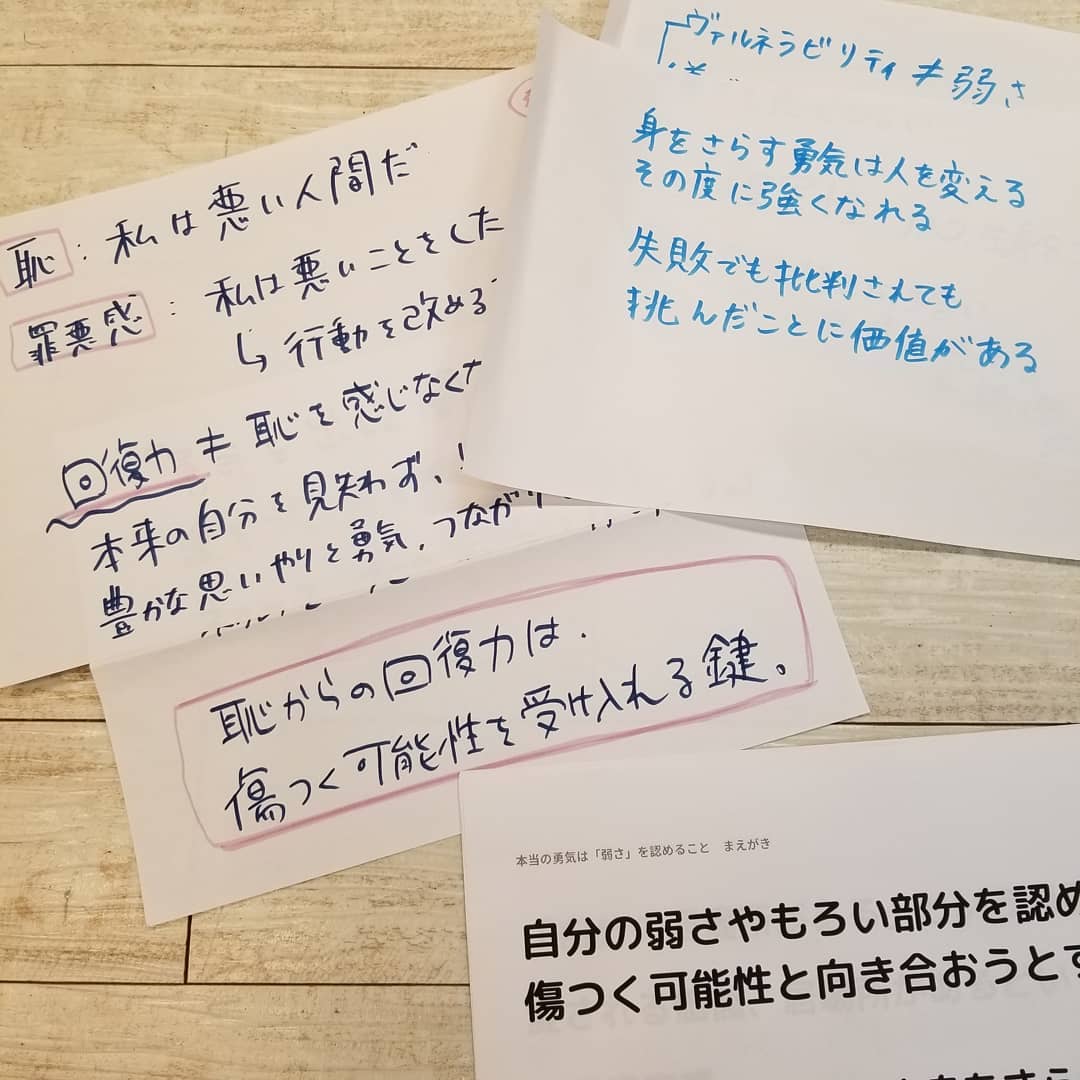 ヴァルネラビリティ≠弱さ
身をさらす勇気は人を変える
その度に強くなれる
失敗でも批判されても
挑んだことに価値がある
恥:私は悪い人間だ
罪悪感:私は悪いことをした
↳行動を改める
回復力≠恥を感じなくな
本来の自分を見失わず、
豊かな思いやりと勇気、つながり
恥からの回復力は、
傷つく可能性を受け入れる鍵。
本当の勇気は「弱さ」を認めること まえがき
自分の弱さやもろい部分を認め
傷つく可能性と向き合おうとす